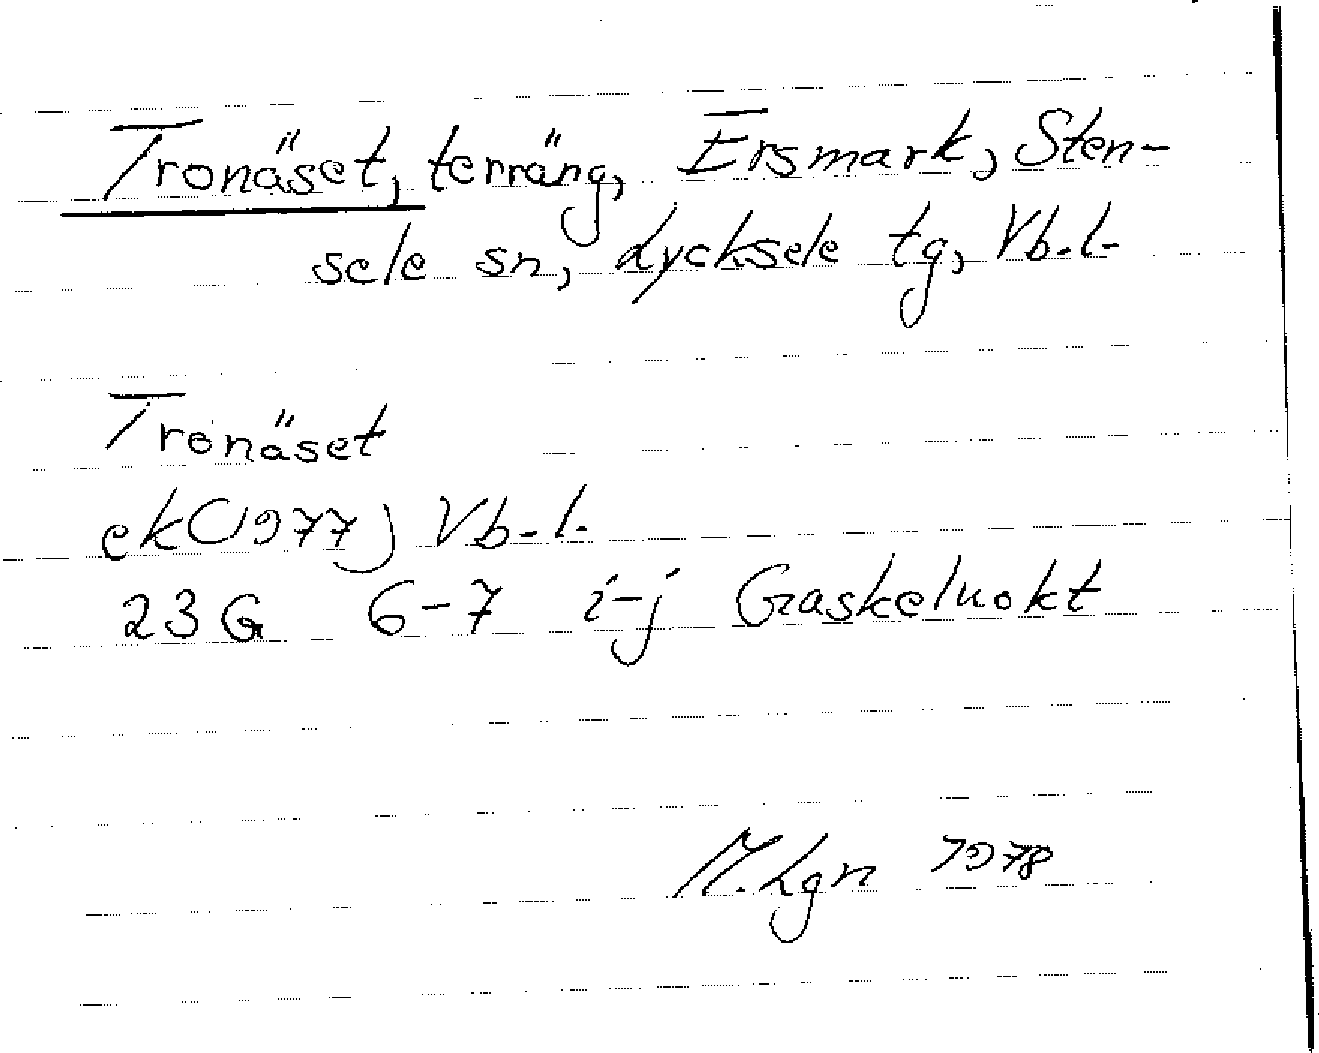 Tronäset, terräng, Ersmark, Sten-
sele sn, Lycksele tg, Vb.l.
Tronäset
ek(1977) Vb.l.
23G 6-7 i-j Gaskeluokt
M.Lgn 1978